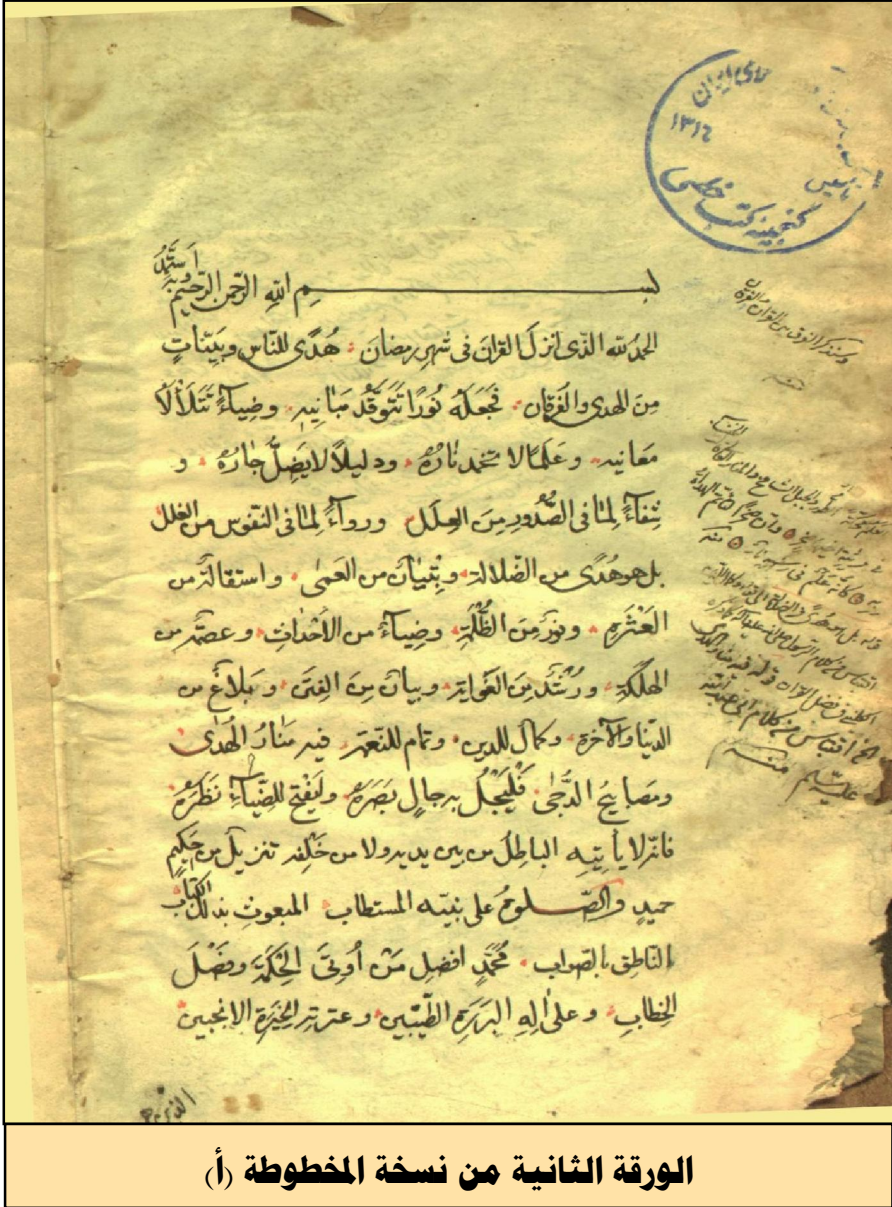 بسم الله الرحمن الرحيم وبه أستمد
الحمد لله الذى انزل القران فى شهر رمضان هُدًى للناس وبيّنات
من الهدى والفرقان فجعله نُورًا تتوقّد مبانيه وضياءً تتلألأ
معانيه وعَلَمًا لا تخمد نارُه ودليلاً لا يضلّ جارُه و
شفاءً لما فى الصُّدور من العِلَل ورواءً لما فى النفوس من الغلل
بل هو هُدًى من الضّلالة وتِبْيان من العَمى واستقالة من
العَثْرة ونور من الظُّلمة وضياءٌ من الأحداث وعصمة من
الهلكة ورُشْد من الغواية وبيان من الفِتن وبلاغ من
الدّنيا والآخرة وكمال للدين وتمام للنّعمة فيه مَنارُ الهُدى
ومصابيح الدُّجى فَليُجِلْ برجالٍ بصَرَه وليَفتح للضّياء نَظَرَه
فانّه لا يأتيه الباطل من بين يديه ولا من خَلفه تنزيل من حكيم
حميد والصّلوة على نبيّه المستطاب المبعوث بذلك الكتاب
الناطق بالصواب محمّدٍ افضل مَن أُوتى الحكمة وفَصْل
الخطاب وعلى آلِهِ البَرَرة الطّيّبين وعترته الخيرة الانجبين
الذين
ملى ايران
١٣١٦
گنجينه كتب خطى
تأسيس
عليه السلم منه
الورقة الثانية من نسخة المخطوطة (أ)